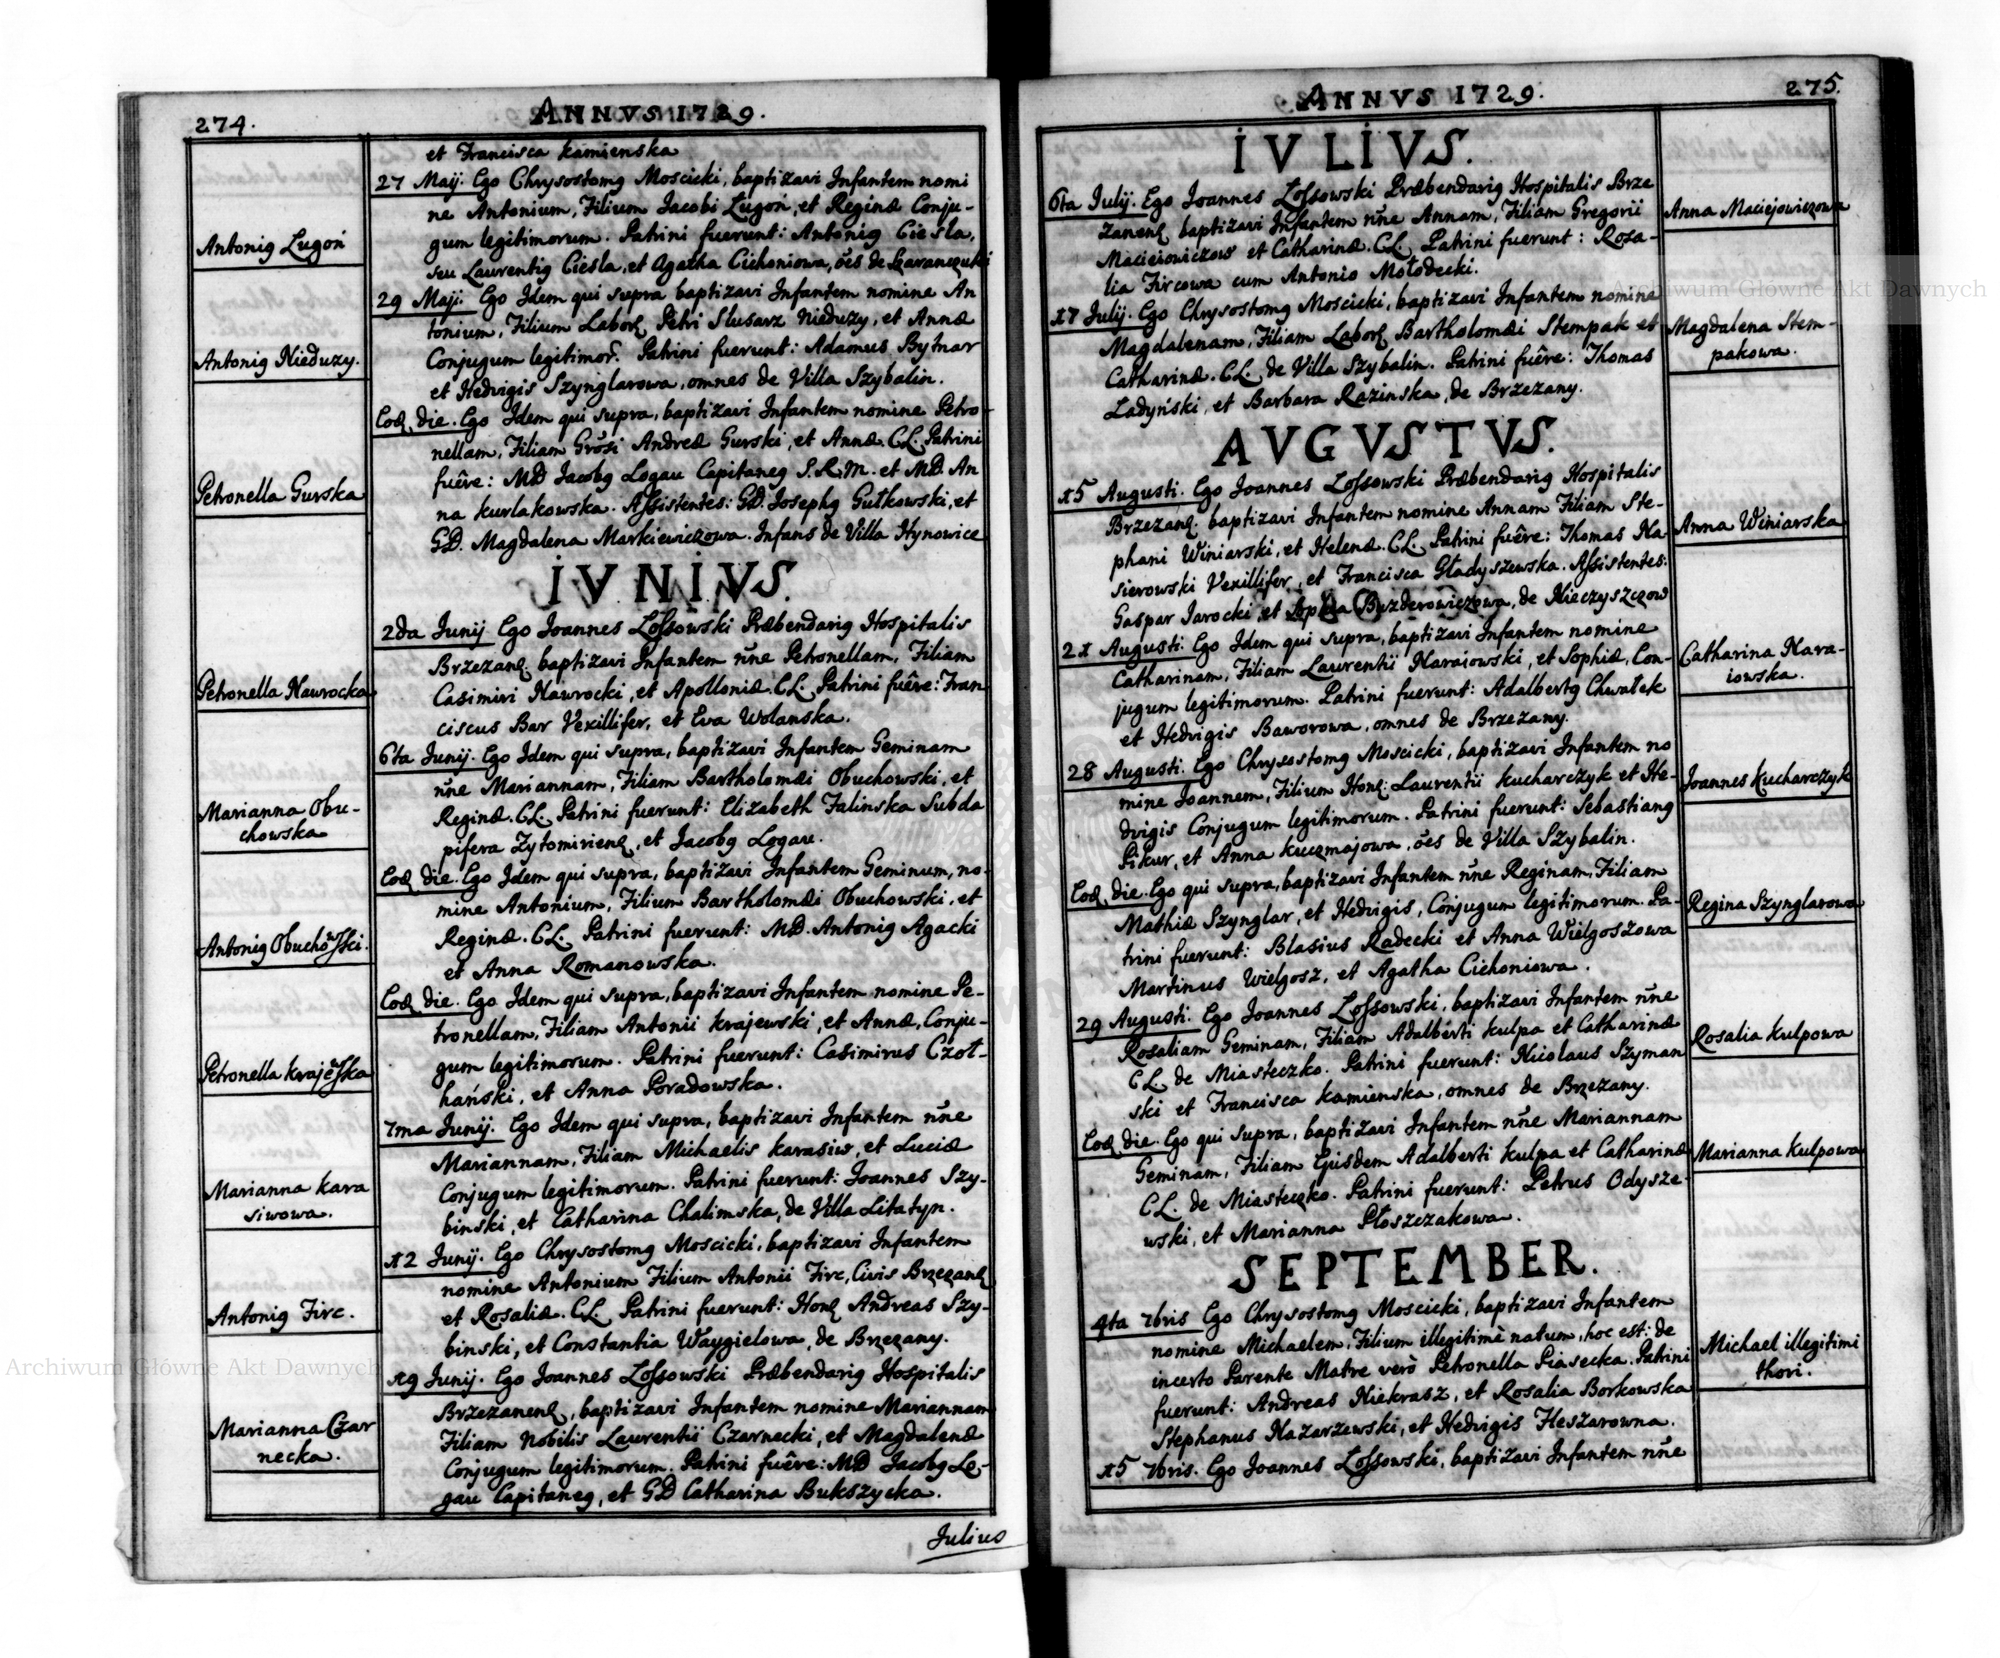 274.
ANNVS 1729.
et Francisca Kamienska
27 Maij. Ego Chrysostomg Moscicki, baptizavi Infantem nomi
ne Antonium, Filium Jacobi Lugoń, et Reginæ Conju-
gum legitimorum. Patrini fuerunt: Antonig Ciesla,
seu Laurentig Ciesla, et Agatha Cichoniowa, oēs de
Antonig Lugoń
29 Maji. Ego Idem qui supra baptizavi Infantem nomine An
tonium, Filium Laborꝭ Petri Slusarz Nieduzy, et Annæ
Conjugum legitimorꝭ. Patrini fuerunt: Adamus Bytnar
et Hedvigis Szynglarowa, omnes de Villa Szybalin.
Antonig Nieduzy.
Eoꝺ die. Ego Idem qui supra, baptizavi Infantem nomine Petro-
nellam, Filiam Grōsi Andreæ Gurski, et Annæ. CL. Patrini
fuêre: MD Jacobg Logau Capitaneg S.R.M. et MD. An
na Kurlakowska. Assistentes: GD. Josephg Gutkowski, et
GD. Magdalena Markiewiczowa. Infans de Villa Hynowice
Petronella Gurska
IVNIVS.
2da Junij Ego Joannes Lossowski Præbendarig Hospitalis
Brzezanꝭ. baptizavi Infantem nn̄e Petronellam, Filiam
Casimiri Nawrocki, et Apolloniæ. CL. Patrini fuêre: Fran
ciscus Bar Vexillifer, et Eva Wolanska.
Petronella Nawrocka
6ta Junij. Ego Idem qui supra, baptizavi Infantem Geminam
nn̄e Mariannam, Filiam Bartholomæi Obuchowski, et
Reginæ. CL. Patrini fuerunt: Elizabeth Falinska Subda
pifera Zytomirienꝭ, et Jacobg Logau.
Marianna Obu-
chowska
Eoꝺ die. Ego Idem qui supra, baptizavi Infantem Geminum, no-
mine Antonium, Filium Bartholomæi Obuchowski, et
Reginæ. CL. Patrini fuerunt: MD. Antonig Agacki
et Anna Romanowska.
Antonig Obuchowski.
Eoꝺ die. Ego Idem qui supra, baptizavi Infantem nomine Pe-
tronellam, Filiam Antonii Krajewski, et Annæ, Conju-
gum legitimorum. Patrini fuerunt: Casimirus Czoł-
hański, et Anna Poradowska.
Petronella Krajewska
7ma Junij. Ego Idem qui supra, baptizavi Infantem nn̄e
Mariannam, Filiam Michaelis Karasiw, et Luciæ
Conjugum legitimorum. Patrini fuerunt: Joannes Szy-
binski, et Catharina Chalimska, de Villa Litatyn.
Marianna Kara
siwowa.
12 Junij. Ego Chrysostomg Moscicki, baptizavi Infantem
nomine Antonium Filium Antonii Firc, Civis Brzezanꝭ
et Rosaliæ. CL. Patrini fuerunt: Honꝭ Andreas Szy-
binski, et Constantia Waygielowa, de Brzezany.
Antonig Firc.
19 Junij. Ego Joannes Lossowski Præbendarig Hospitalis
Brzezanenꝭ, baptizavi Infantem nomine Mariannam
Filiam Nobilis Laurentii Czarnecki, et Magdalenæ
Conjugum legitimorum. Patrini fuêre: MD Jacobg Lo-
gau Capitaneg, et GD Catharina Bukszycka.
Marianna Czar
necka.
Julius
ANNVS 1729.
275.
IVLIVS.
6ta Julij. Ego Joannes Lossowski Præbendarig Hospitalis Brze
zanenꝭ baptizavi Infantem nn̄e Annam, Filiam Gregorii
Macieiowiczow et Catharinæ. CL. Patrini fuerunt: Rosa-
lia Fircowa cum Antonio Mołodecki.
Anna Maciejowiczowa
17 Julij. Ego Chrysostomg Moscicki, baptizavi Infantem nomine
Magdalenam, Filiam Laborꝭ Bartholomæi Stempak et
Catharinæ. CL. de Villa Szybalin. Patrini fuêre: Thomas
Ladyński, et Barbara Razinska, de Brzezany.
Magdalena Stem-
pakowa.
AVGVSTVS.
15 Augusti. Ego Joannes Lossowski Præbendarig Hospitalis
Brzezanꝭ. baptizavi Infantem nomine Annam Filiam Ste-
phani Winiarski, et Helenæ. CL. Patrini fuêre: Thomas Na-
sierowski Vexillifer, et Francisca Gładyszewska. Assistentes:
Gaspar Jarocki, et Sophia Buzderowiczowa, de Nieczyszczow
Anna Winiarska
21 Augusti. Ego Idem qui supra, baptizavi Infantem nomine
Catharinam, Filiam Laurentii Naraiowski, et Sophiæ, Con-
jugum legitimorum. Patrini fuerunt: Adalbertg Chwałek
et Hedvigis Baworowa, omnes de Brzezany.
Catharina Nara-
iowska.
28 Augusti. Ego Chrysostomg Moscicki, baptizavi Infantem no
mine Joannem, Filium Honꝭ: Laurentii Kucharczyk et He-
dvigis Conjugum legitimorum. Patrini fuerunt: Sebastiang
Pikur, et Anna Kuczmajowa, oēs de Villa Szybalin.
Joannes Kucharczyk
Eoꝺ die. Ego qui supra, baptizavi Infantem nn̄e Reginam, Filiam
Mathiæ Szynglar, et Hedvigis, Conjugum legitimorum. Pa-
trini fuerunt: Blasius Radecki et Anna Wielgoszowa
Martinus Wielgosz, et Agatha Cichoniowa.
Regina Szynglarowa
29 Augusti. Ego Joannes Lossowski, baptizavi Infantem nn̄e
Rosaliam Geminam, Filiam Adalberti Kulpa et Catharinæ
CL. de Miasteczko. Patrini fuerunt: Nicolaus Szyman
ski et Francisca Kamienska, omnes de Brzezany.
Rosalia Kulpowa
Eoꝺ die. Ego qui supra, baptizavi Infantem nn̄e Mariannam
Geminam, Filiam Ejusdem Adalberti Kulpa et Catharinæ
CL. de Miasteczko. Patrini fuerunt: Petrus Odysze-
wski, et Marianna Płoszczakowa.
Marianna Kulpowa
SEPTEMBER.
4ta 7bris Ego Chrysostomg Moscicki, baptizavi Infantem
nomine Michaelem, Filium illegitimè natum, hoc est: de
incerto Parente Matre verò Petronella Piasecka. Patrini
fuerunt: Andreas Niekrasz, et Rosalia Borkowska
Stephanus Nazarzewski, et Hedvigis Heszarowna.
Michael illegitimi
thori.
15 7bris. Ego Joannes Lossowski, baptizavi Infantem nn̄e
Archiwum Główne Akt Dawnych
Archiwum Główne Akt Dawnych